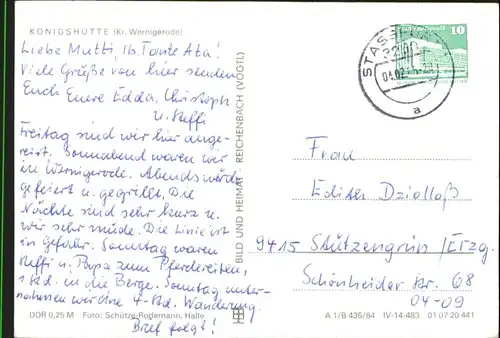 KÖNIGSHÜTTE (Kr. Wernigerode)
Liebe Mutti, lb. Tante Ata!
Viele Grüße von hier senden
Euch Euere Edda, Christoph
u. Steffi
Freitag sind wir hier ange-
reist. Sonnabend waren wir
in Wernigerode. Abends wurde
gefeiert u. gegrillt. Die
Nächte sind sehr kurz u.
wir sehr müde. Die Linie ist
in Gefahr. Sonntag waren
Steffi u. Papa zum Pferdereiten,
1 Std. in die Berge. Sonntag unter-
nahmen wir eine 4-Std. Wanderung.
Brief folgt!
DDR 0,25 M Foto: Schütze-Rodemann, Halle
BILD UND HEIMAT REICHENBACH (VOGTL)
STASSFURT
a
10
Frau
Edith Dzialloß
9415 Stützengrün/Erzg.
Schönheider Str. 68
04-09
A 1/B 435/84 IV-14-483 01 07 20 441